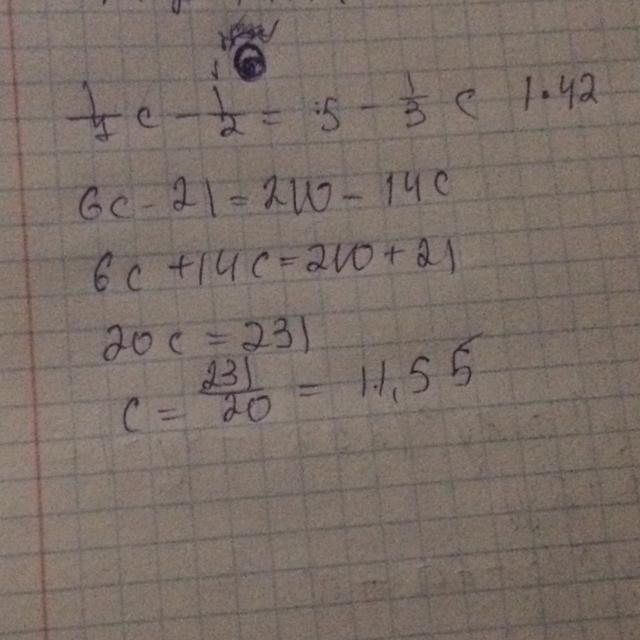 1/7 c - 1/2 = 5 - 1/3 c 1·42
6c - 21 = 210 - 14c
6c + 14c = 210 + 21
20c = 231
c = 231/20 = 11,55